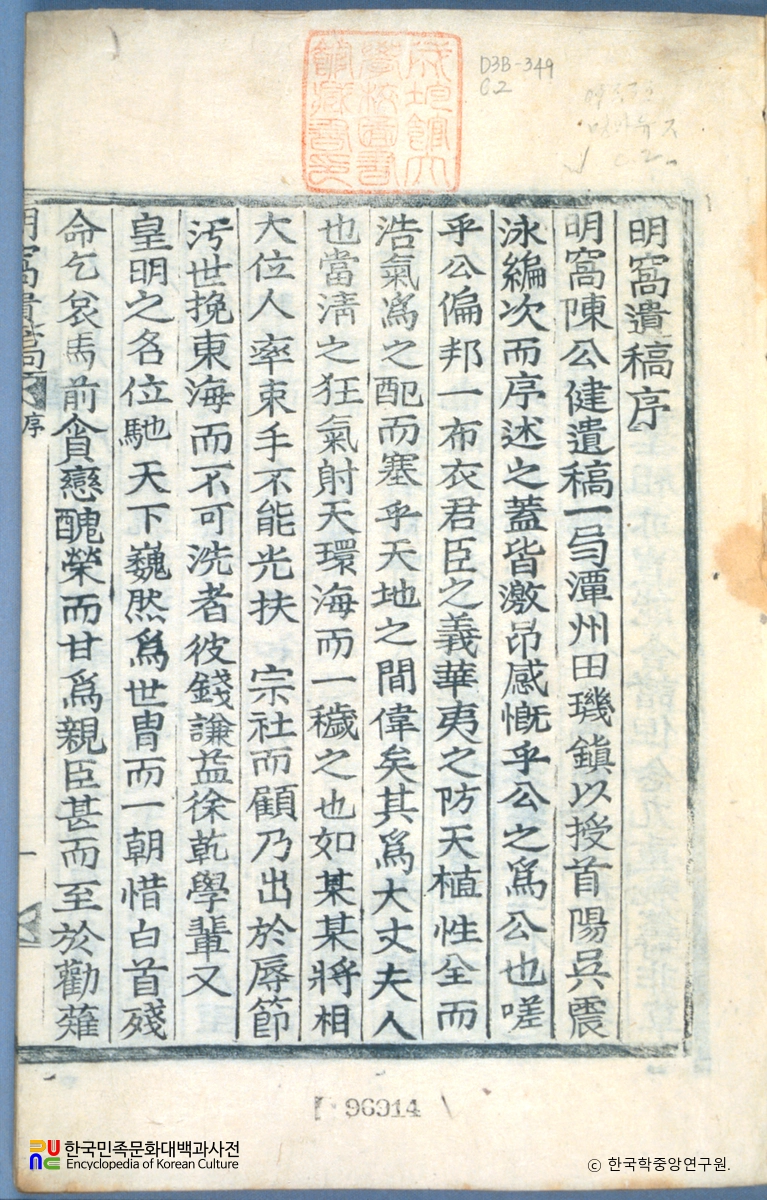 明窩遺稿序
明窩陳公健遺稿一弓潭州田璣鎭以授首陽吳震
泳編次而序述之蓋皆激昂感慨乎公之爲公也嗟
乎公偏邦一布衣君臣之義華夷之防天植性全而
浩氣爲之配而塞乎天地之間偉矣其爲大丈夫人
也當淸之狂氣射天環海而一穢之也如某某將相
大位人率束手不能光扶 宗社而顧乃出於辱節
汚世挽東海而不可洗者彼錢謙益徐乾學輩又
皇明之名位馳天下巍然爲世胄而一朝惜白首殘
命乞哀馬前貪戀醜榮而甘爲親臣甚而至於勸薙
明窩遺稿
序
一
D3B-349
C.2
96914
한국민족문화대백과사전
Encyclopedia of Korean Culture
ⓒ 한국학중앙연구원.